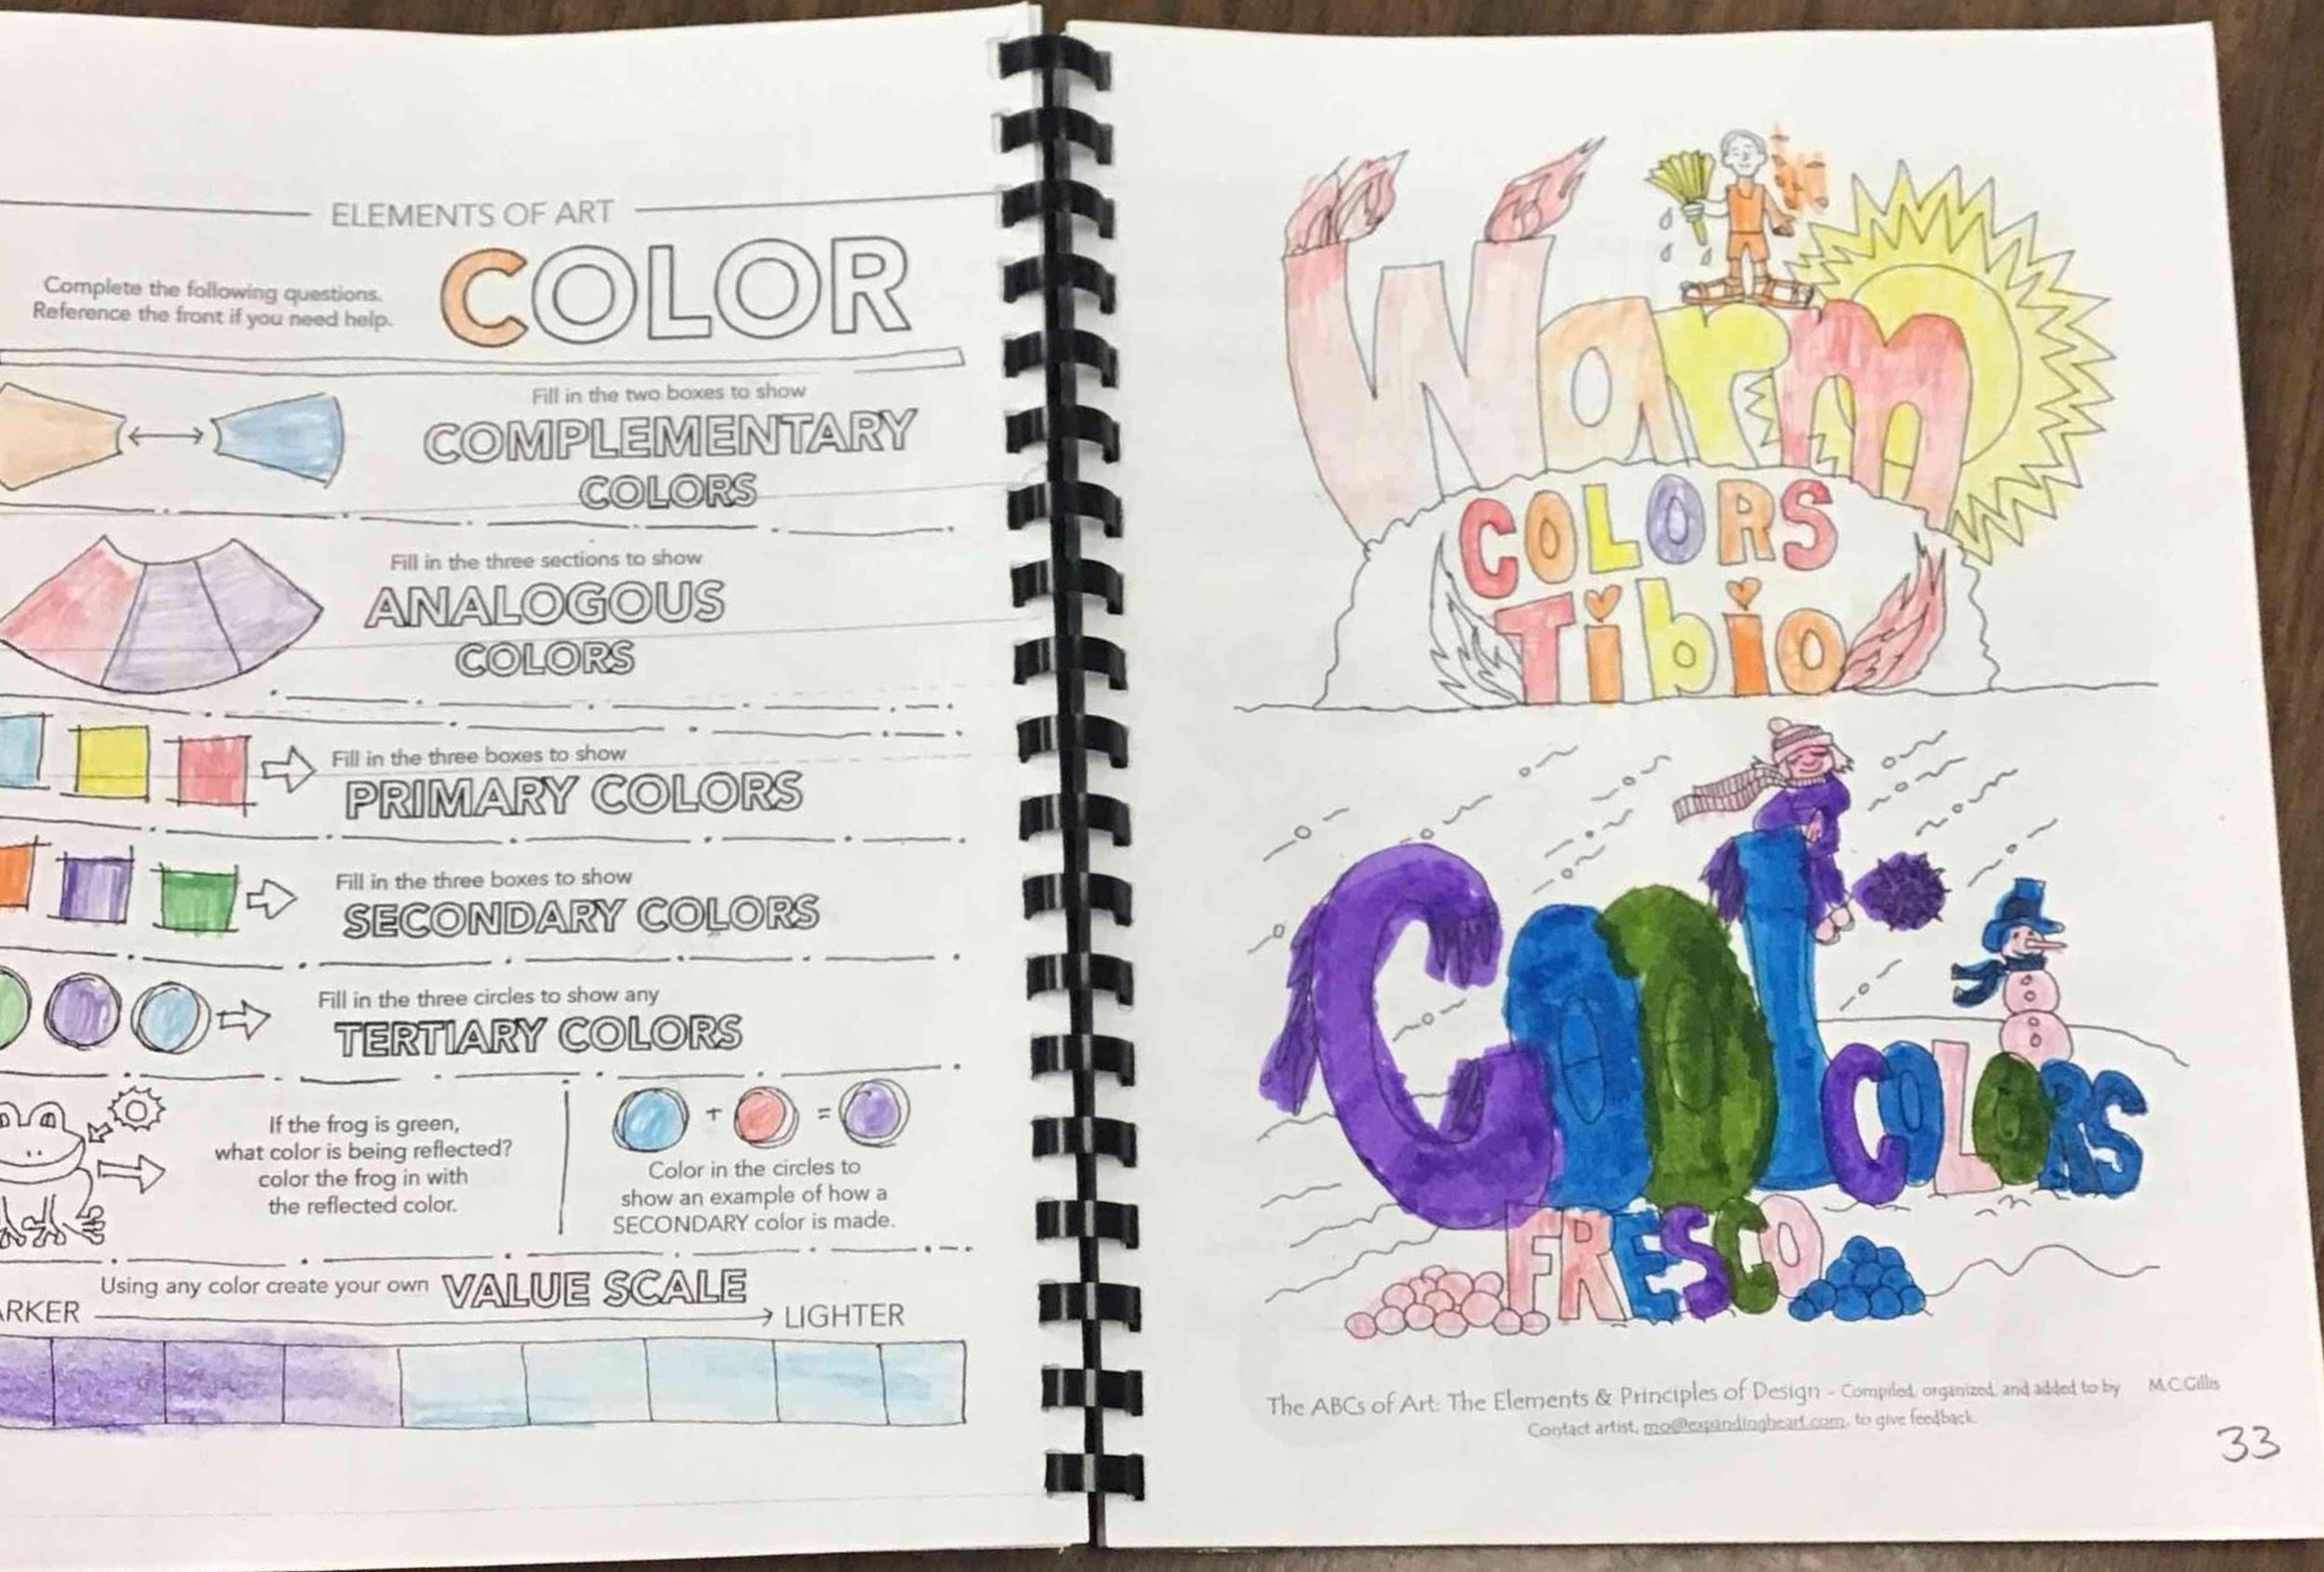 ELEMENTS OF ART
COLOR
Complete the following questions.
Reference the front if you need help.
Fill in the two boxes to show
COMPLEMENTARY
COLORS
Fill in the three sections to show
ANALOGOUS
COLORS
Fill in the three boxes to show
PRIMARY COLORS
Fill in the three boxes to show
SECONDARY COLORS
Fill in the three circles to show any
TERTIARY COLORS
If the frog is green,
what color is being reflected?
color the frog in with
the reflected color.
+ =
Color in the circles to
show an example of how a
SECONDARY color is made.
Using any color create your own VALUE SCALE
ARKER LIGHTER
Warm
COLORS
Tibio
Cool
COLORS
FRESCO
The ABCs of Art: The Elements & Principles of Design - Compiled, organized, and added to by M.C.Gillis
Contact artist, mo@expandingheart.com, to give feedback.
33